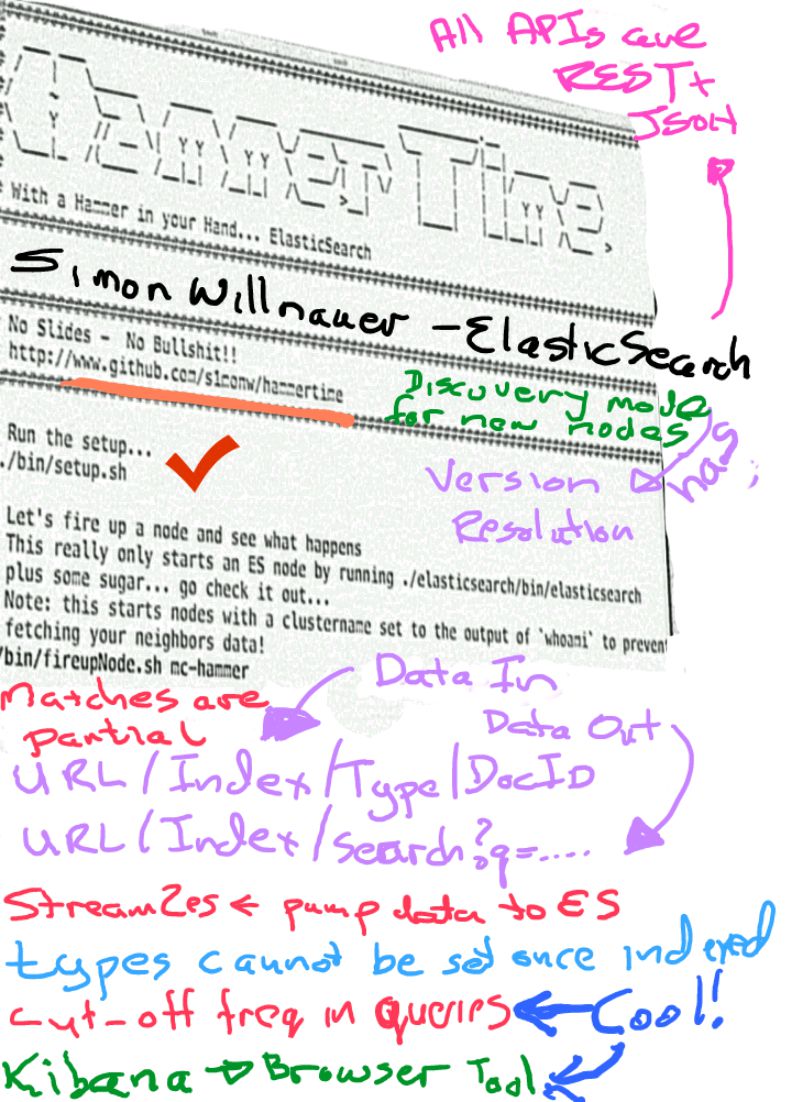 All APIs are
REST +
JSON
Hammer Time
With a Hammer in your Hand... ElasticSearch
Simon Willnauer - ElasticSearch
No Slides - No Bullshit!!
http://www.github.com/s1monw/hammertime
Discovery mode
for new nodes
has
Version
Resolution
Run the setup...
./bin/setup.sh
Let's fire up a node and see what happens
This really only starts an ES node by running ./elasticsearch/bin/elasticsearch
plus some sugar... go check it out...
Note: this starts nodes with a clustername set to the output of `whoami` to prevent
fetching your neighbors data!
/bin/fireupNode.sh mc-hammer
Matches are
partial
Data In
Data Out
URL/Index/Type/DocID
URL/Index/search?q=....
Stream2es ← pump data to ES
types cannot be set once indexed
cut-off freq in queries ← Cool!
Kibana → Browser Tool